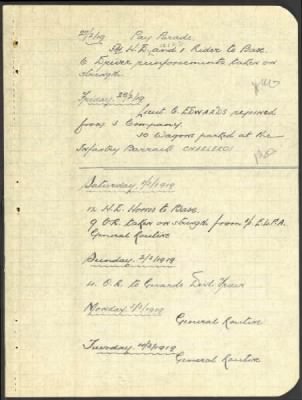 27/2/19 Pay Parade.
H.D. and 1 Rider to Base.
6 Driver reinforcements taken on
strength
Friday 28/2/19
Lieut C. EDWARDS rejoined
from S Company.
50 Wagons parked at the
Infantry Barrack CHARLEROI
Saturday 1/3/1919
12 H.D. Horses to Base.
9 O.R. taken on strength from
General Routine
Sunday 2/3/1919
4 O.R. to Guards Train
Monday 3/3/1919
General Routine
Tuesday 4/3/1919
General Routine